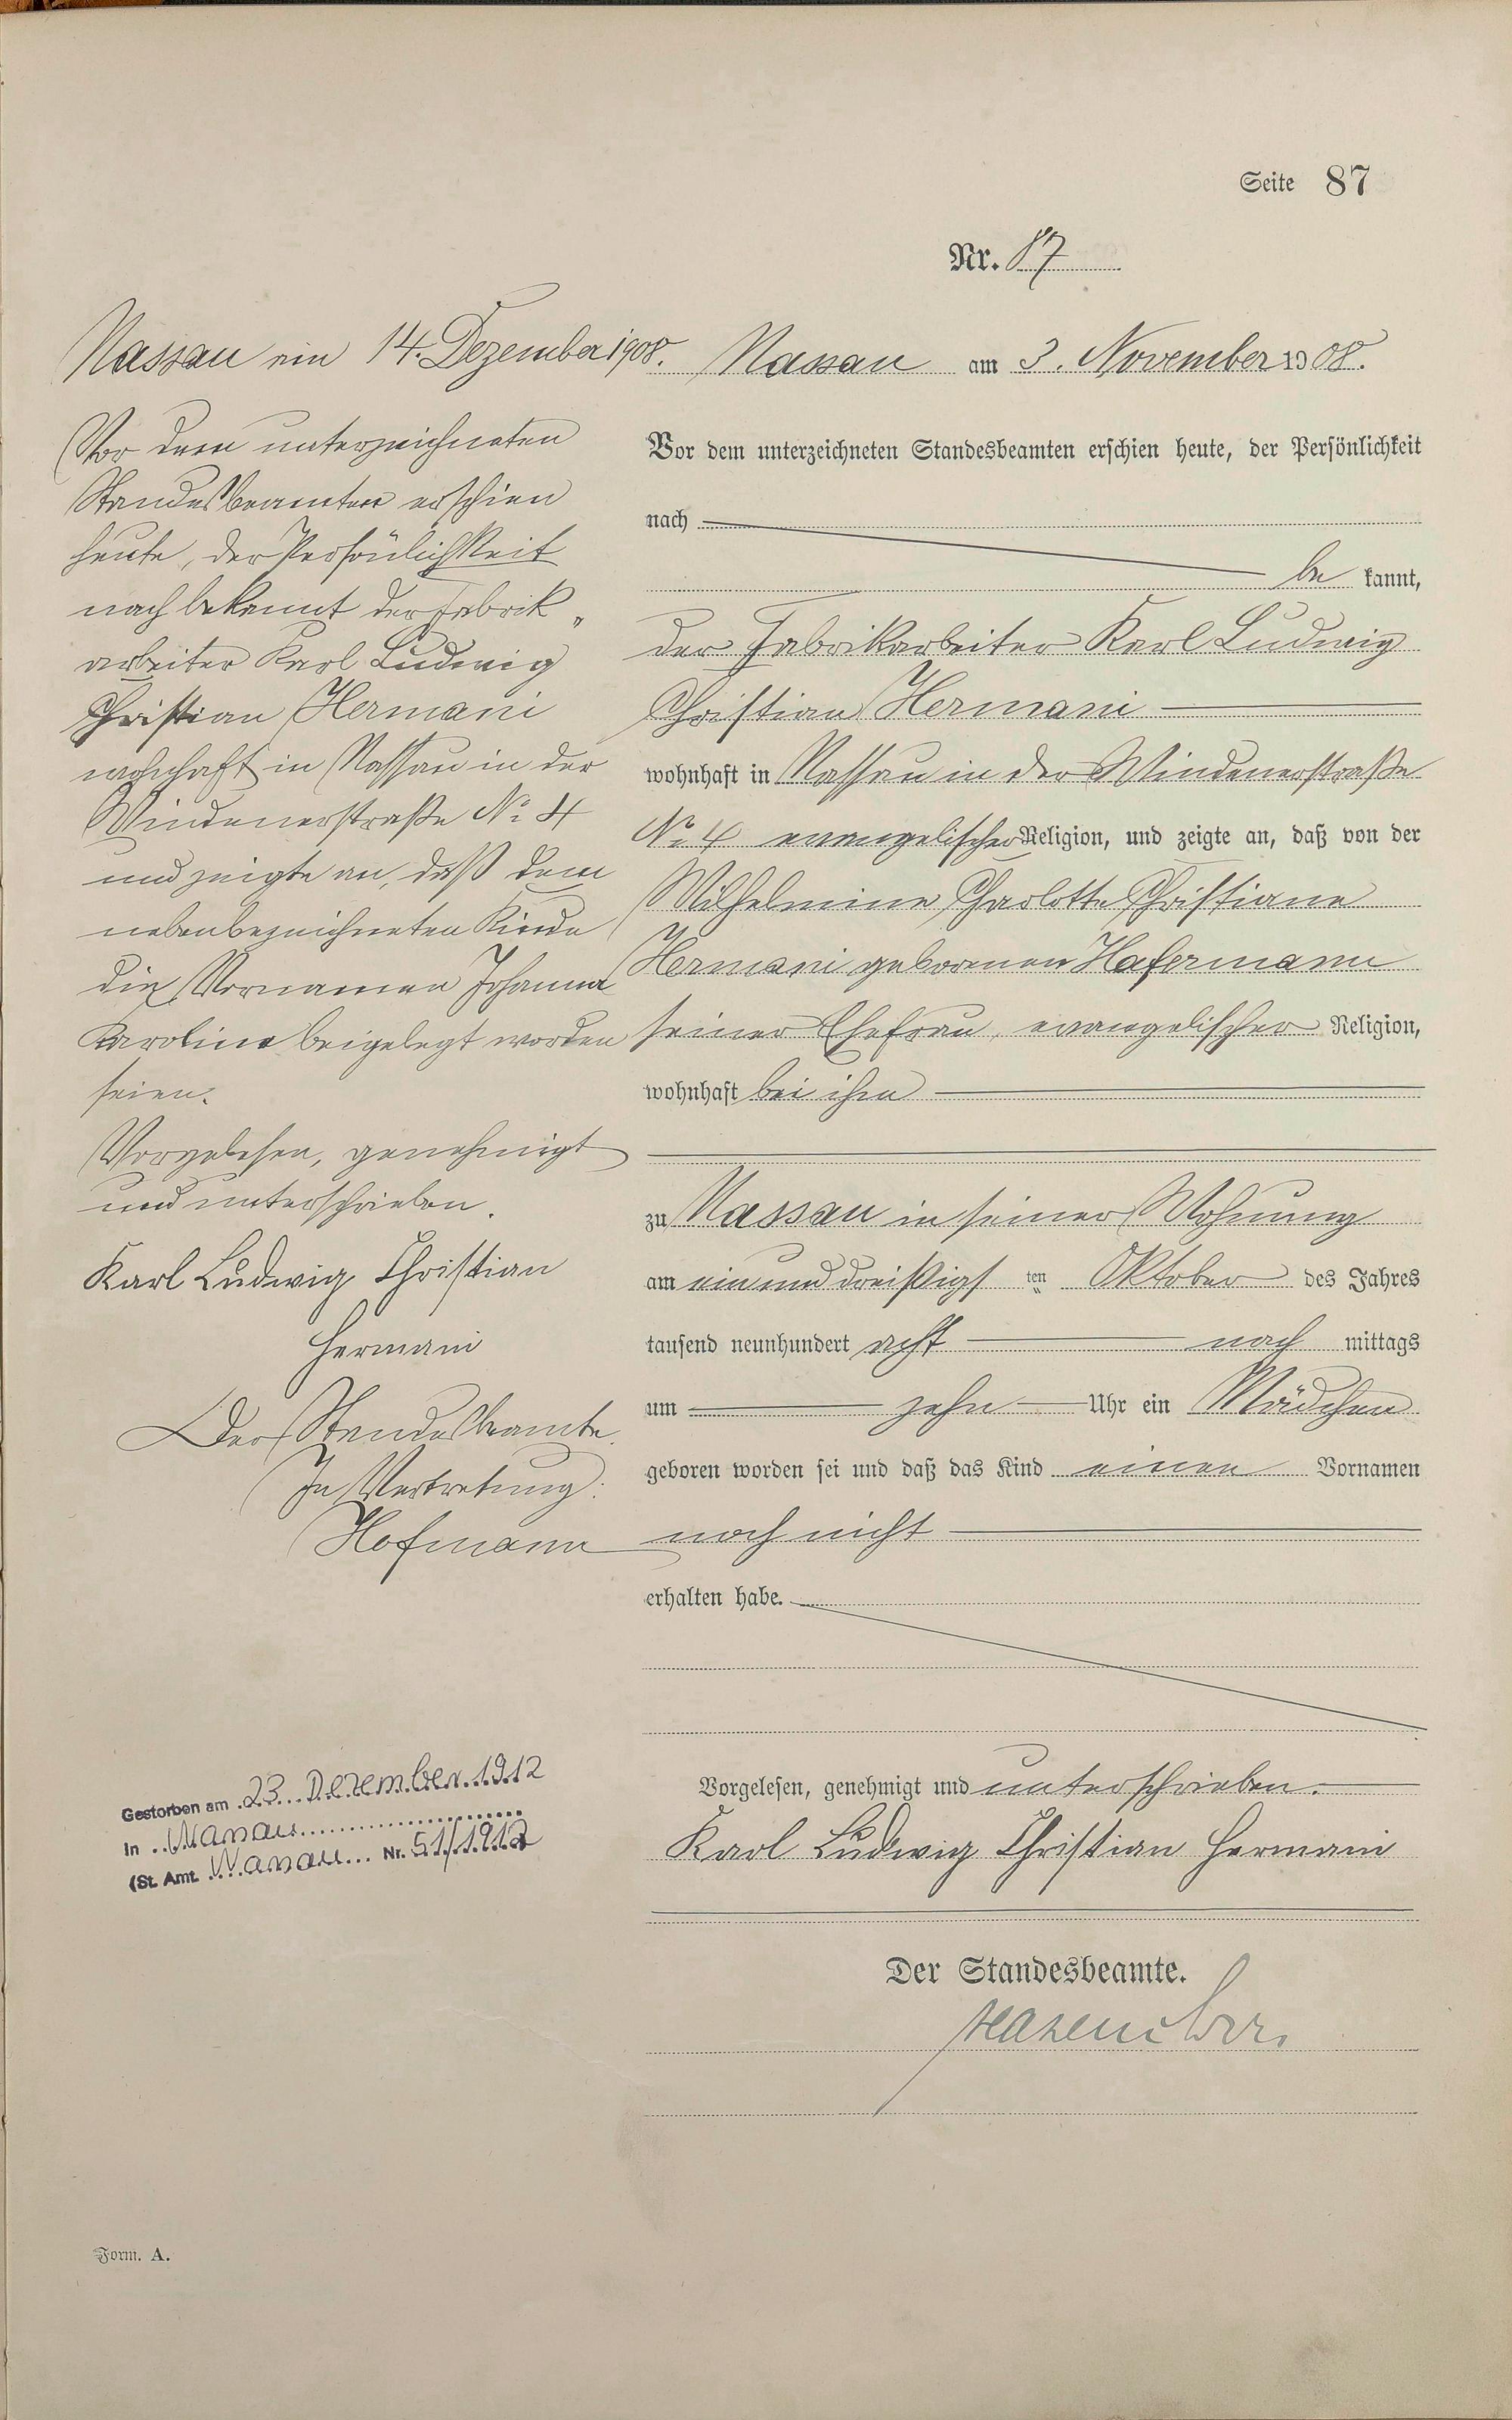 Seite 87
Nr. 87
Nassau am 3. November 1908.
Vor dem unterzeichneten Standesbeamten erschien heute, der Persönlichkeit
nach
be kannt,
der Fabrikarbeiter Karl Ludwig
Christian Hermani
wohnhaft in Nassau in der Windenerstraße
No 4 evangelischer Religion, und zeigte an, daß von der
Wilhelmine Charlotte Christiane
Hermani geborenen Hafermann
seiner Ehefrau, evangelischer Religion,
wohnhaft bei ihm
zu Nassau in seiner Wohnung
am einunddreißigs ten Oktober des Jahres
tausend neunhundert acht nach mittags
um zehn Uhr ein Mädchen
geboren worden sei und daß das Kind einen Vornamen
noch nicht
erhalten habe.
Vorgelesen, genehmigt und unterschrieben.
Karl Ludwig Christian Hermani
Der Standesbeamte.
Nassau am 14. Dezember 1908.
Vor dem unterzeichneten
Standesbeamten erschien
heute, der Persönlichkeit
nach bekannt der Fabrik„
arbeiter Karl Ludwig
Christian Hermani
wohnhaft in Nassau in der
Windenerstraße No 4
und zeigte an, daß dem
nebenbezeichneten Kinde
die Vornamen Johanna
Karoline beigelegt worden
seien.
Vorgelesen, genehmigt
und unterschrieben.
Karl Ludwig Christian
Hermani
Der Standesbeamte.
In Vertretung:
Hofmann
Gestorben am 23. Dezember 1912
In Nassau
(St. Amt Nassau Nr. 51/1912
Form. A.